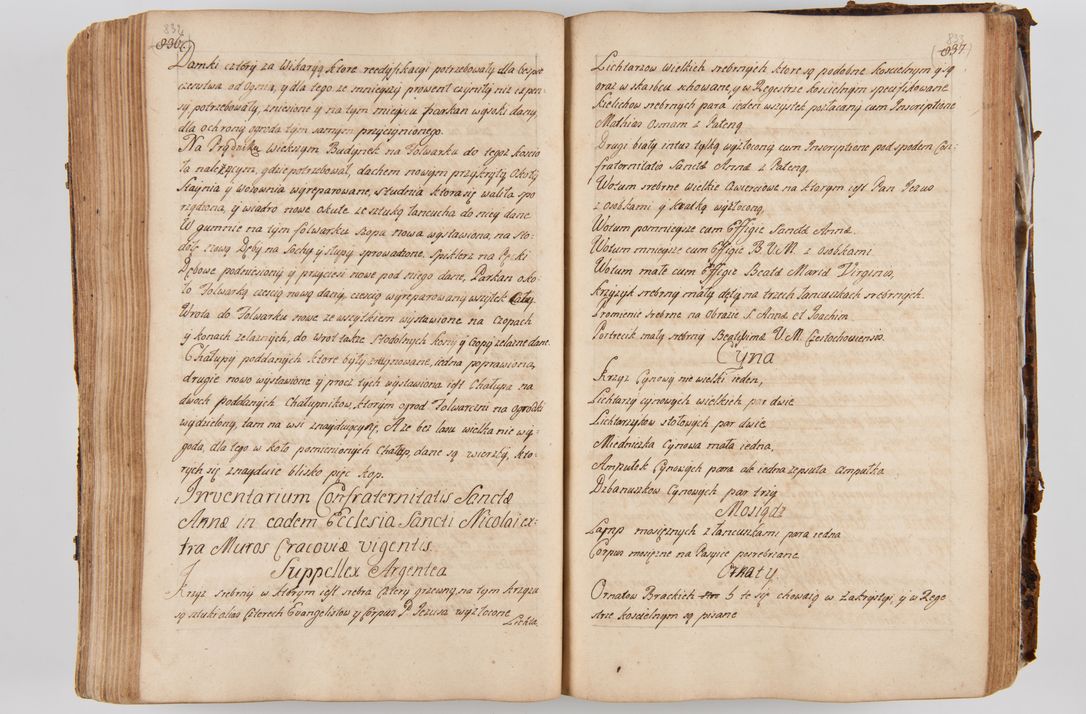 832
836
Damski cztery za Wikaryą ktore reedyfikacyi potrzebowały dla bespie
czenstwa od Ognia, y dla tego ze mnieyszy prowent czyniły niz expen
sy potrzebowały, zniesione y na tym mieyscu Parkan wysoki dany,
dla ochrony ogroda tym samym przyczynionego.
Na Prądniku Wiekszym Budynek na Folwarku do tegoz Koscio
ła nalezącym, gdzie potrzebował, dachem nowym przykryty Okoły
Staynia y Wołownia wyreparowane, Studnia ktora się waliła spo
rządzona, y wiadro nowe okute ze sztuką łancucha do niey dane
W gumnie na tym folwarku Szopa nowa wystawiona, na sto-
dołę nową Dęby na Sochy y słupy sprowadzone, Spiklerz na
Dębowe podniesiony y przyciesi nowe pod niego dane, Parkan oko-
ło Folwarku czescią nową dany czescią wyreparowany wszytek
Wrota do Folwarku nowe ze wszytkiem wystawione na Czopach
y konach zelaznych, do wrot także stodolnych kony y Czopy zelazne dane.
Chałupy poddanych ktore były zruynowane, iedna poprawiona,
drugie nowo wystawione y procz tych wystawiona iest Chałupa na
dwoch poddanych Chałupnikow, ktorym ogrod Folwarczni na ogrodki
wydzielony, tam na wsi znayduiący się, A ze bez lasu wielka nie wy-
goda, dla tego w koło pomienionych Chałup, dane są wierzby, kto-
rych się znayduie blisko pięc kop.
Inventarium Confraternitatis Sanctæ
Annæ in eadem Ecclesia Sancti Nicolai ex-
tra Muros Cracoviæ vigentis.
Suppellex Argentea
Krzyz srebrny w ktorym iest srebra Cztery grzewny, na tym krzyzu
są sztuki alias czterech Evangelistow y Corpus P. Jezusa wyzłocone
Lichta.
833
837
Lichtarzow Wielkich srebrnych ktore są podobne koscielnym y są
oraz w skarbcu schowane, y w Regestrze koscielnym specifikowane
Kielichow srebrnych para ieden wszystek pozłacany cum Inscriptione
Mathias Osmam z Pateną
Drugi biały intus tylko wyzłocony cum Inscriptione pod spodem Con-
fraternitatis Sanctæ Annæ z Pateną,
Wotum srebrne wielkie Cwierciowe na ktorym iest Pan Jezus
z osobkami y kratką wyzłoconą,
Wotum pomnieysze cum Effigie Sanctæ Annæ.
Wotum mnieysze cum Effigie B. V. M. z osobkami
Wotum małe cum Effigie Beatæ Mariæ Virginis,
Krzyzyk srebrny mały dęty na trzech łancuszkach srebrnych.
Promienie srebrne na Obrazie S. Annæ et Joachim
Portrecik mały srebrny Beatissimæ V. M. Czestochoviensis.
Cyna
Krzyz Cynowy nie wielki ieden,
Lichtarzy cynowych wielkich par dwie
Lichtarzykow stołowych par dwie
Miedniczka Cynowa mała iedna,
Ampułek Cynowych para ale iedna zepsuta ampułka
Dzbanuszkow Cynowych par trzy
Mosiądz
Lamp mosięznych z łancuszkami para iedna
Corpus mosięzne na Pasyice posrebrzane
Ornaty
Ornatow Brackich 5 te się chowaią w Zakrystyi, y w Rege
strze koscielnym są pisane